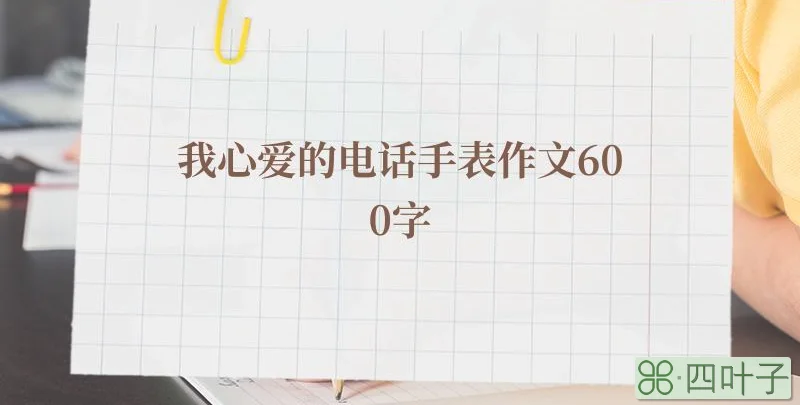 我心爱的电话手表作文60
0字
四叶子